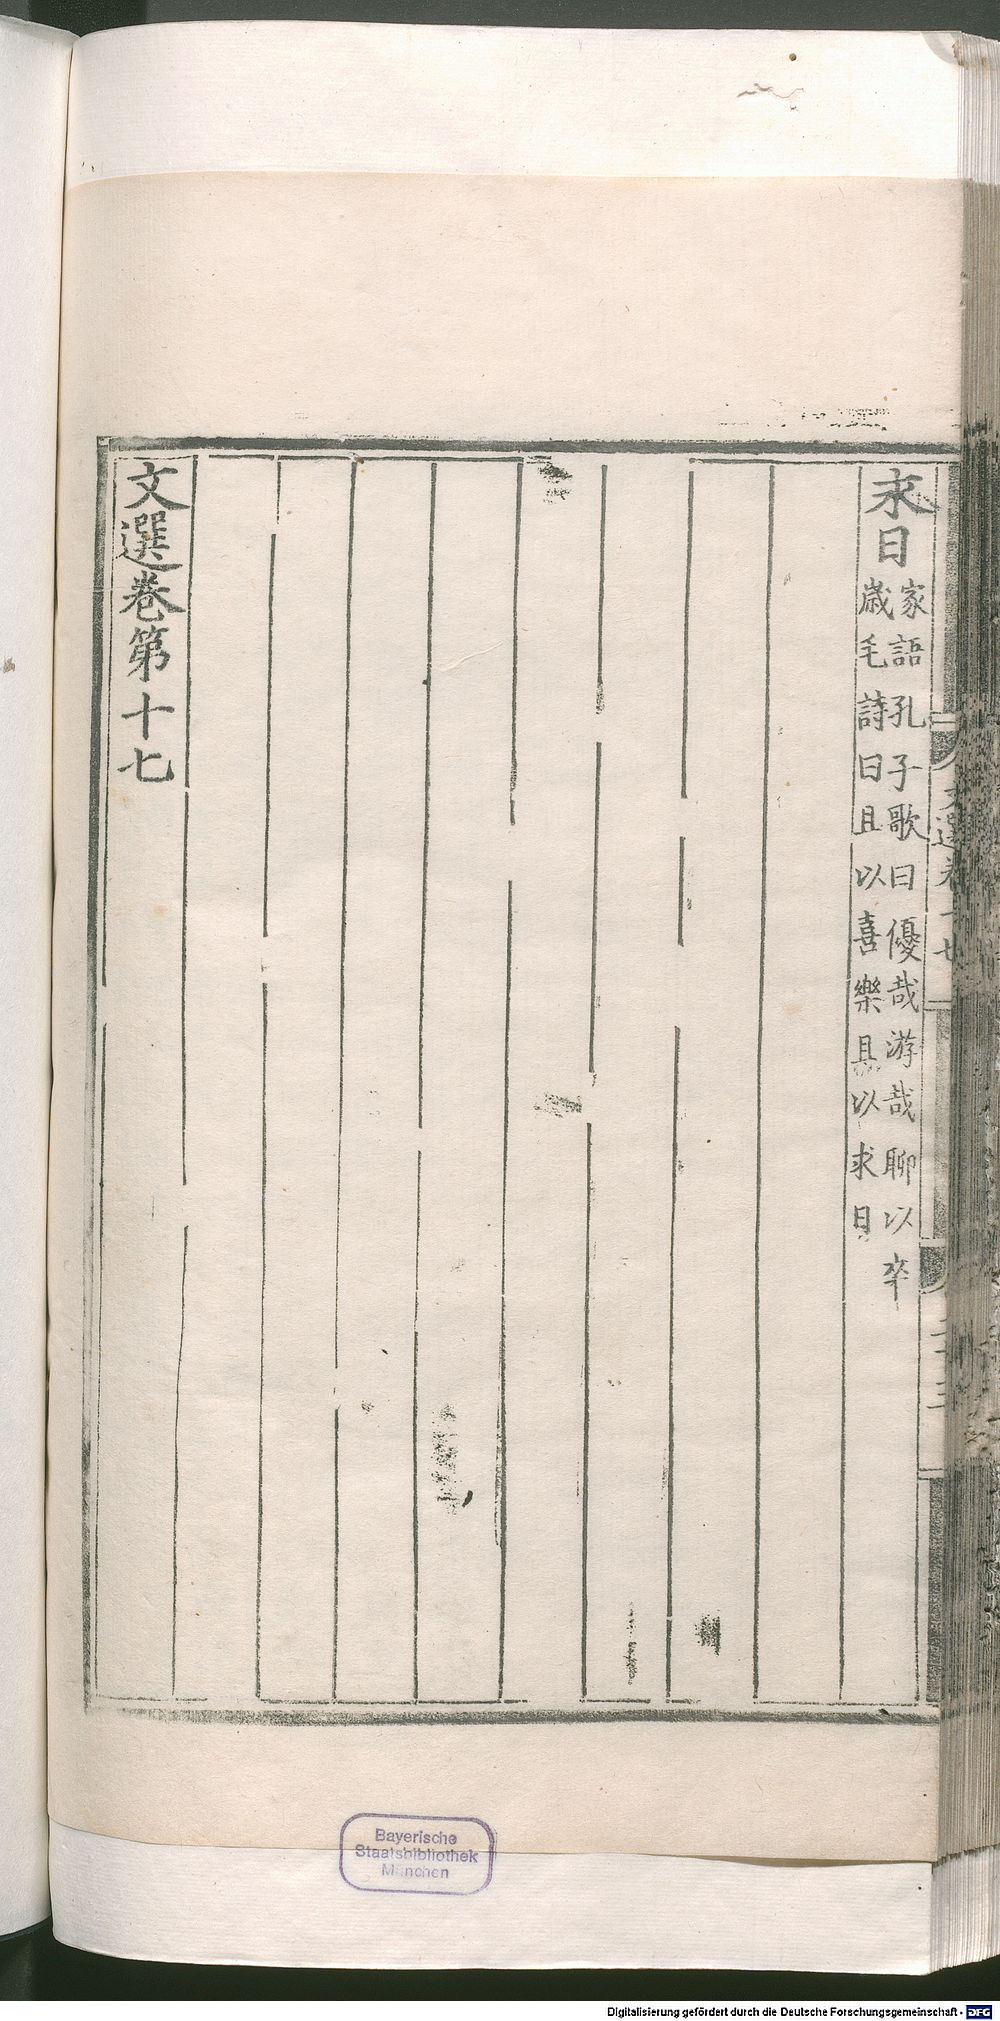 永日家語孔子歌曰優哉游哉聊以卒
歲毛詩曰且以喜樂且以永日
文選卷第十七
文選卷十七
Bayerische
Staatsbibliothek
München
Digitalisierung gefördert durch die Deutsche Forschungsgemeinschaft - DFG